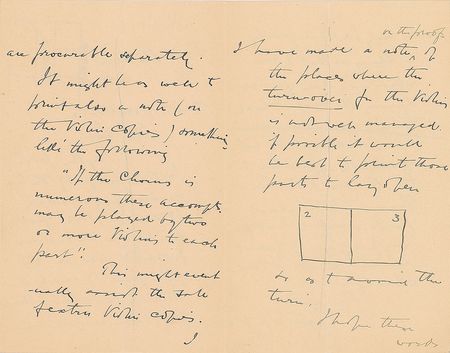 are procurable separately.
It might be as well to
print also a note (on
the Violin copies) something
like the following
"If the Chorus is
numerous these accompts.
may be played by two
or more Violins to each
part".
This might event
-ually assist the sale
of extra Violin copies.
I
on the proof
I have made a note ^ of
the places where the
turn-over for the Violins
is not well managed.
If possible it would
be best to print those
parts to lay open
2 3
so as to avoid the
turn.
I hope these
words